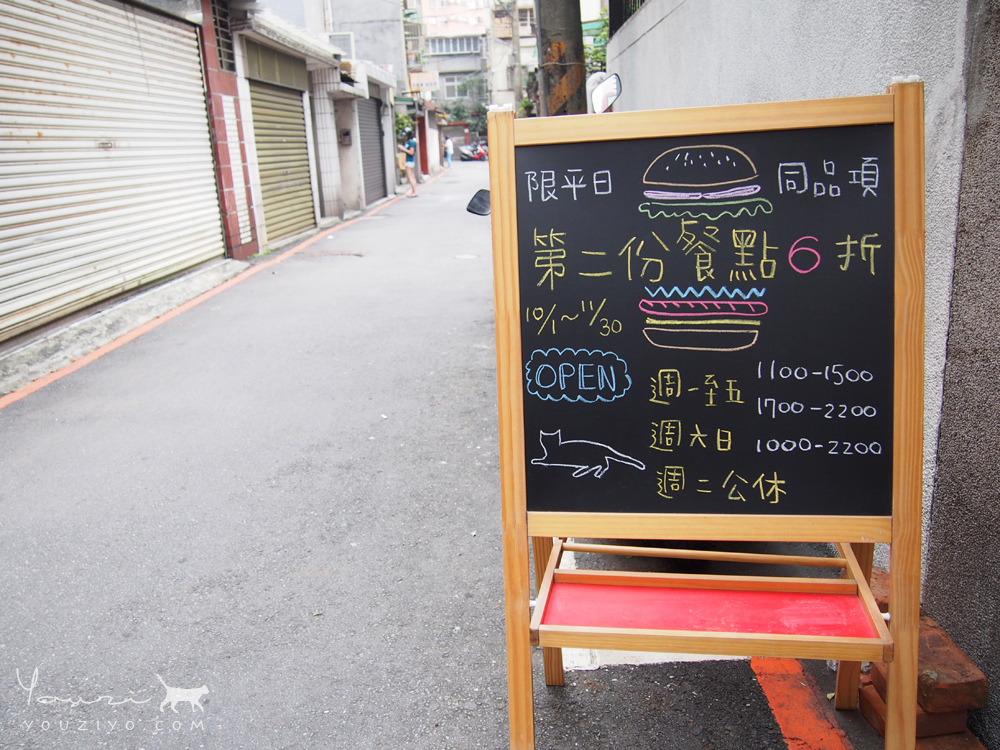 限平日 同品項
第二份餐點6折
10/1~11/30
OPEN
週一至五 1100-1500
1700-2200
週六日 1000-2200
週二公休
Youzi
YOUZIYO.COM